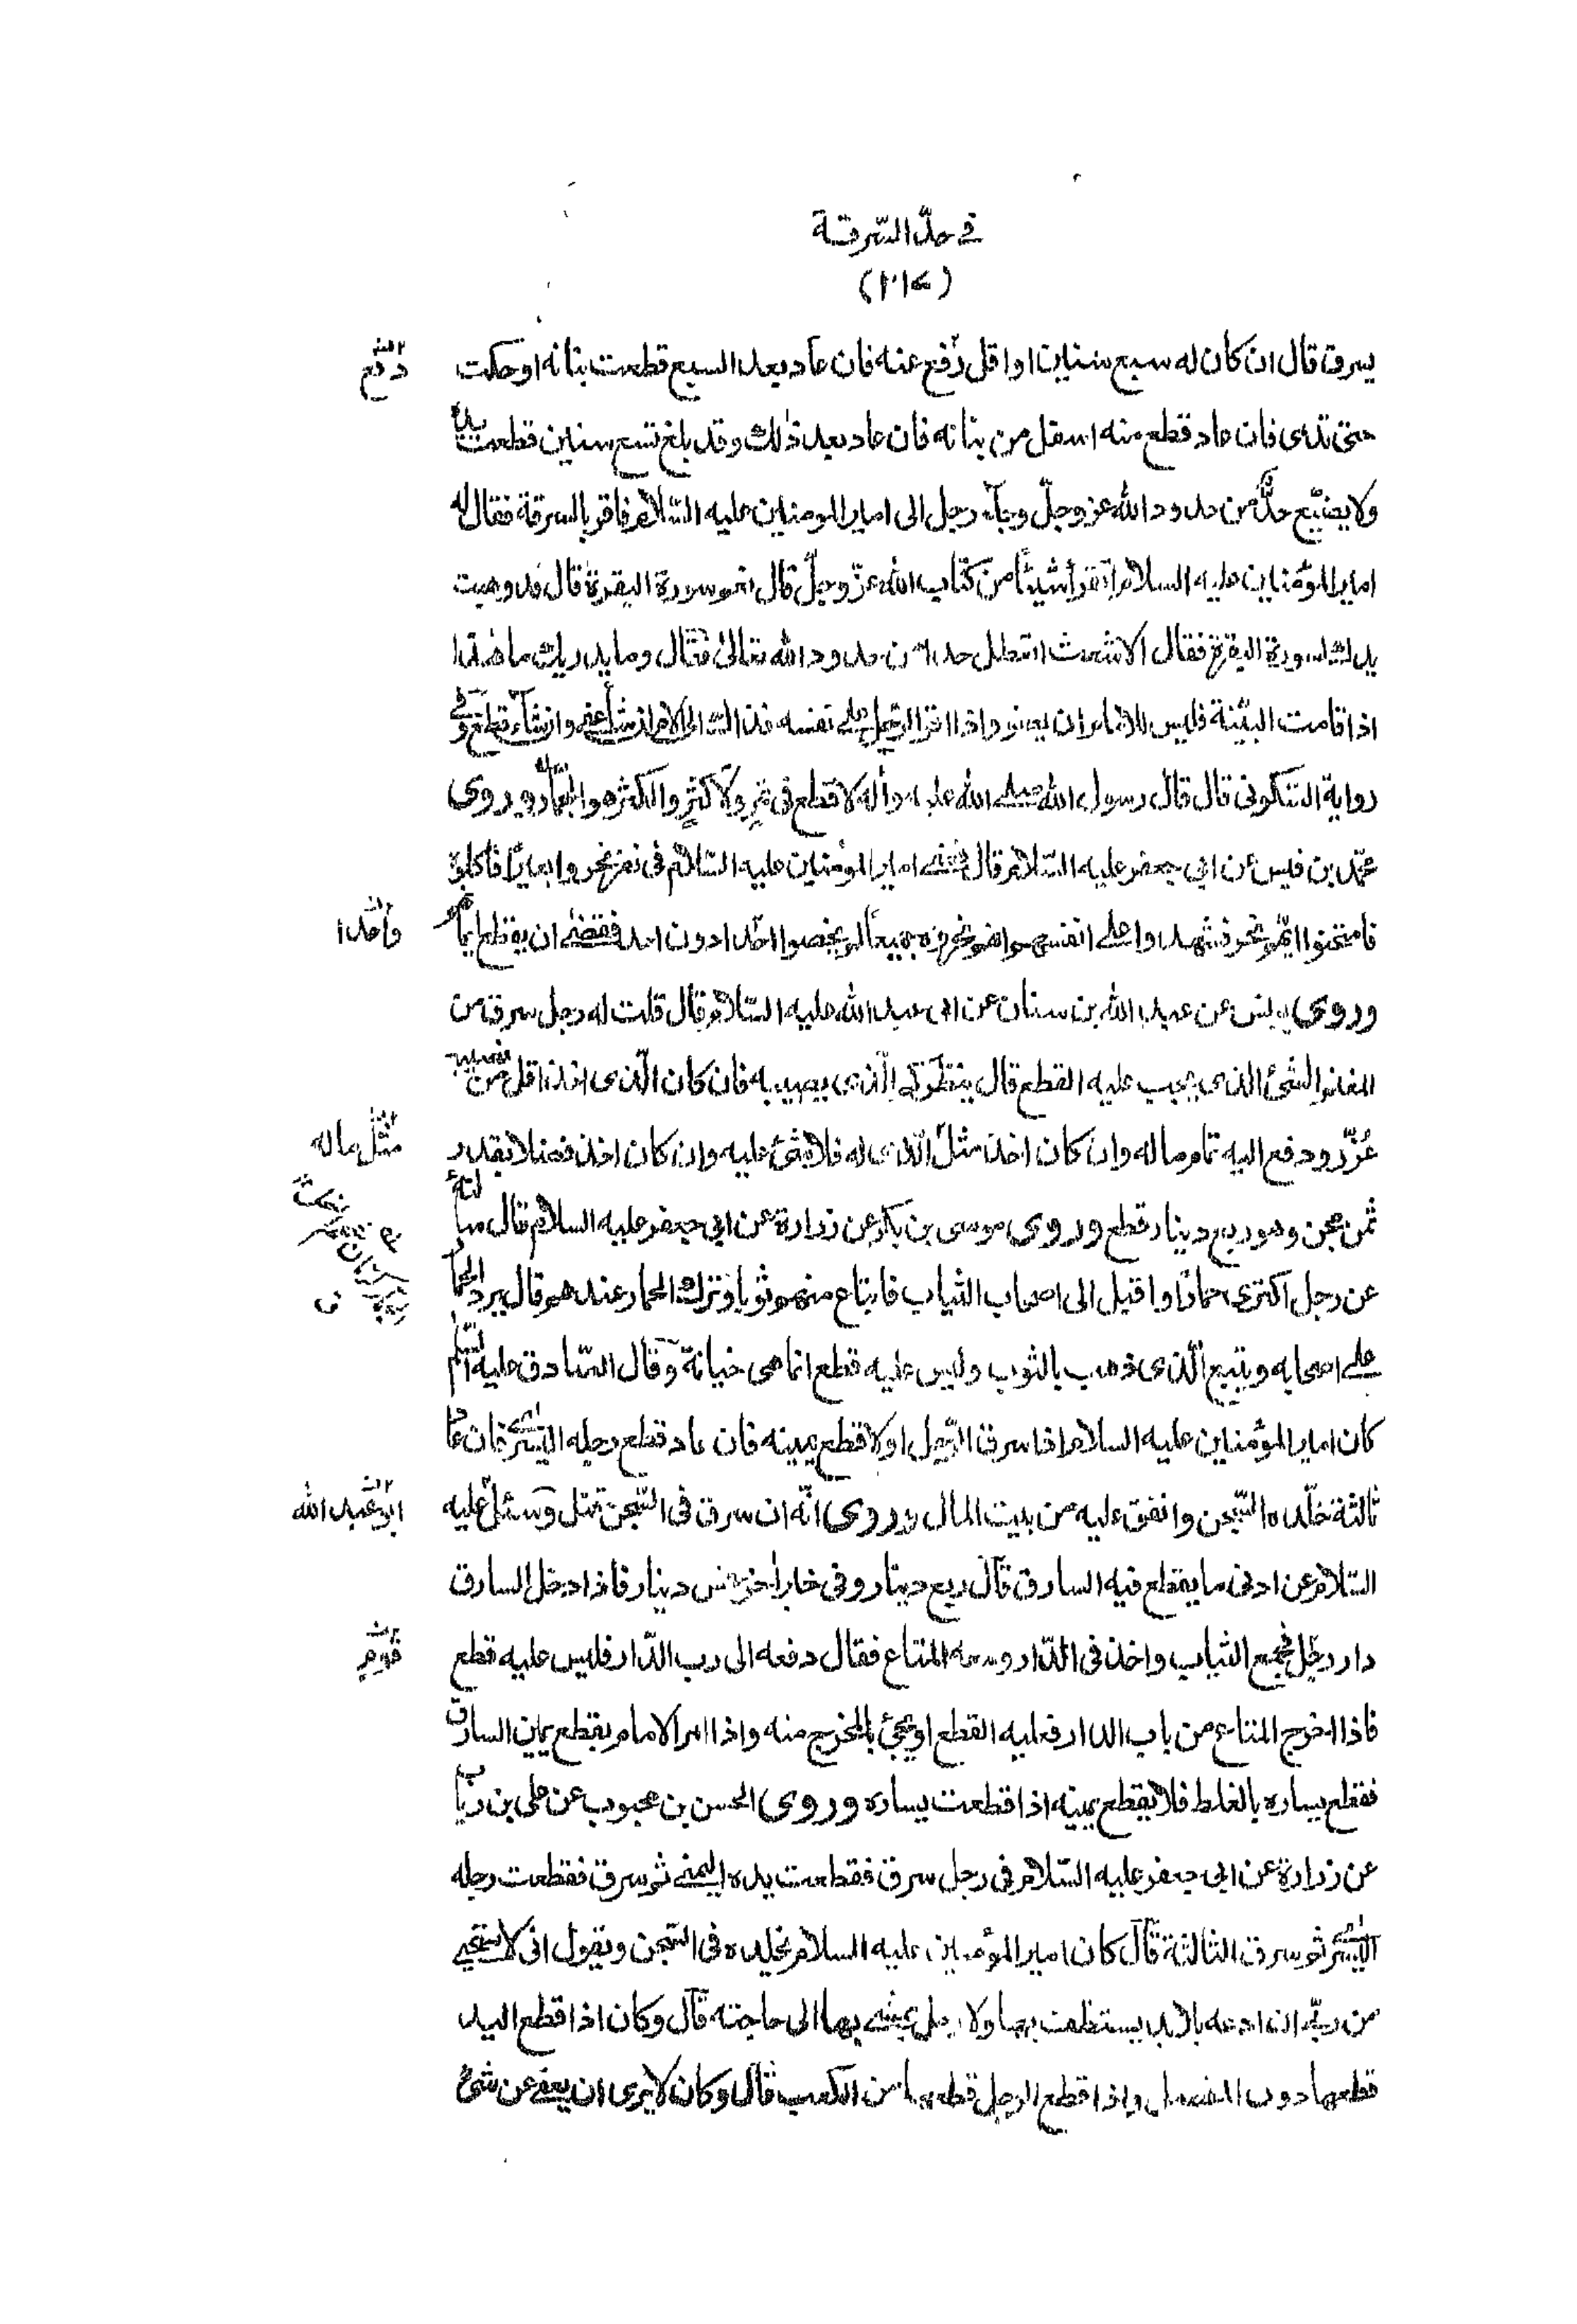 في حدّ السّرقة
يسرق قال ان كان له سبع سنين او اقل رُفع عنه فان عاد بعد السبع قطعت بنانه او حكت
دفع
حتى تدمى فان عاد قطع منه اسفل من بنانه فان عاد بعد ذلك وقد بلغ تسع سنين قطعت يده
ولا يضيّع حدّ من حدود الله عز وجلّ وجاء رجل الى امير المومنين عليه السّلام فاقر بالسرقة فقال له
امير المؤمنين عليه السلام اتقرأ شيئًا من كتاب الله عزّ وجلّ قال نعم سورة البقرة قال قد وهبت
يدك لسورة البقرة فقال الاشعث اتعطل حدا من حدود الله تعالى فقال وما يدريك ما هذا
اذا قامت البيّنة فليس للامام ان يعفو واذا اقر الرجل على نفسه فذاك الى الامام ان شاء عفى وان شاء قطع وفي
رواية السّكوني قال قال رسول الله صلى الله عليه وآله لا قطع في ثمر ولا كثر والكثر هو الجمّار وروى
محمّد بن قيس عن ابي جعفر عليه السّلام قال قضى امير المؤمنين عليه السّلام في نفر نحروا بعيرًا فاكلوه
فامتحنوا ايّهم نحر فشهدوا على انفسهم انهم نحروه جميعاً لم يخصوا احدا دون احد فقضى ان يقطع ايمانهم
واحدا
وروى يونس عن عبد الله بن سنان عن ابي عبد الله عليه السّلام قال قلت له رجل سرق من
المغنم الشئ الذي يجب عليه القطع قال ينظر كم الّذي يصيبه فان كان الّذي اخذ اقل من نصيبه
عُزّر ودفع اليه تمام ماله وان كان اخذ مثل الّذي له فلا شئ عليه وان كان اخذ فضلا بقدر
مثل ماله
ثمن مجن وهو ربع دينار قطع وروى موسى بن بكر عن زرارة عن ابي جعفر عليه السلام قال سالته
عن رجل اكترى حمارًا واقبل الى اصحاب الثياب فابتاع منهم ثوبا وترك الحمار عندهم قال يرد الحمار
على اصحابه ويتبع الّذي ذهب بالثوب وليس عليه قطع انما هي خيانة وقال الصّادق عليه السّلم
كان امير المؤمنين عليه السلام اذا سرق الرّجل اولا قطع يمينه فان عاد قطع رجله اليسرى فان عاد
ثالثة خلّده السّجن وانفق عليه من بيت المال وروى انّه ان سرق في السّجن قتل وسئل عليه
ابو عبد الله
السّلام عن ادنى ما يقطع فيه السارق قال ربع دينار وفي خبر آخر خمس دينار فاذا دخل السارق
دار رجل فجمع الثياب واخذ في الدّار ومعه المتاع فقال دفعه الى رب الدّار فليس عليه قطع
قوم
فاذا اخرج المتاع من باب الدار فعليه القطع او يجئ بالمخرج منه واذا امر الامام بقطع يمين السارق
فقطع يساره بالغلط فلا يقطع يمينه اذا قطعت يساره وروى الحسن بن محبوب عن علي بن رئاب
عن زرارة عن ابي جعفر عليه السّلام في رجل سرق فقطعت يده اليمنى ثم سرق فقطعت رجله
اليسرى ثم سرق الثالثة قال كان امير المؤمنين عليه السلام يخلده في السّجن ويقول اني لاستحيي
من ربّي ان ادعه بلا يد يستنظف بها ولا رجل يمشي بها الى حاجته قال وكان اذا قطع اليد
قطعها دون المفصل واذا قطع الرجل قطعها من الكعب قال وكان لا يرى ان يعفى عن شئ